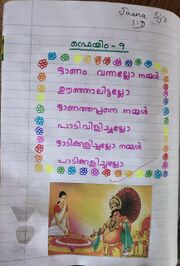 Juana Sijo
1:D
ഓണം വന്നല്ലോ നമ്മൾ
ഊഞ്ഞാലിട്ടല്ലോ
ഓണത്തപ്പനെ നമ്മൾ
പാടിവിളിച്ചല്ലോ
ഓടിക്കളിച്ചല്ലോ നമ്മൾ
പാടിക്കളിച്ചല്ലോ